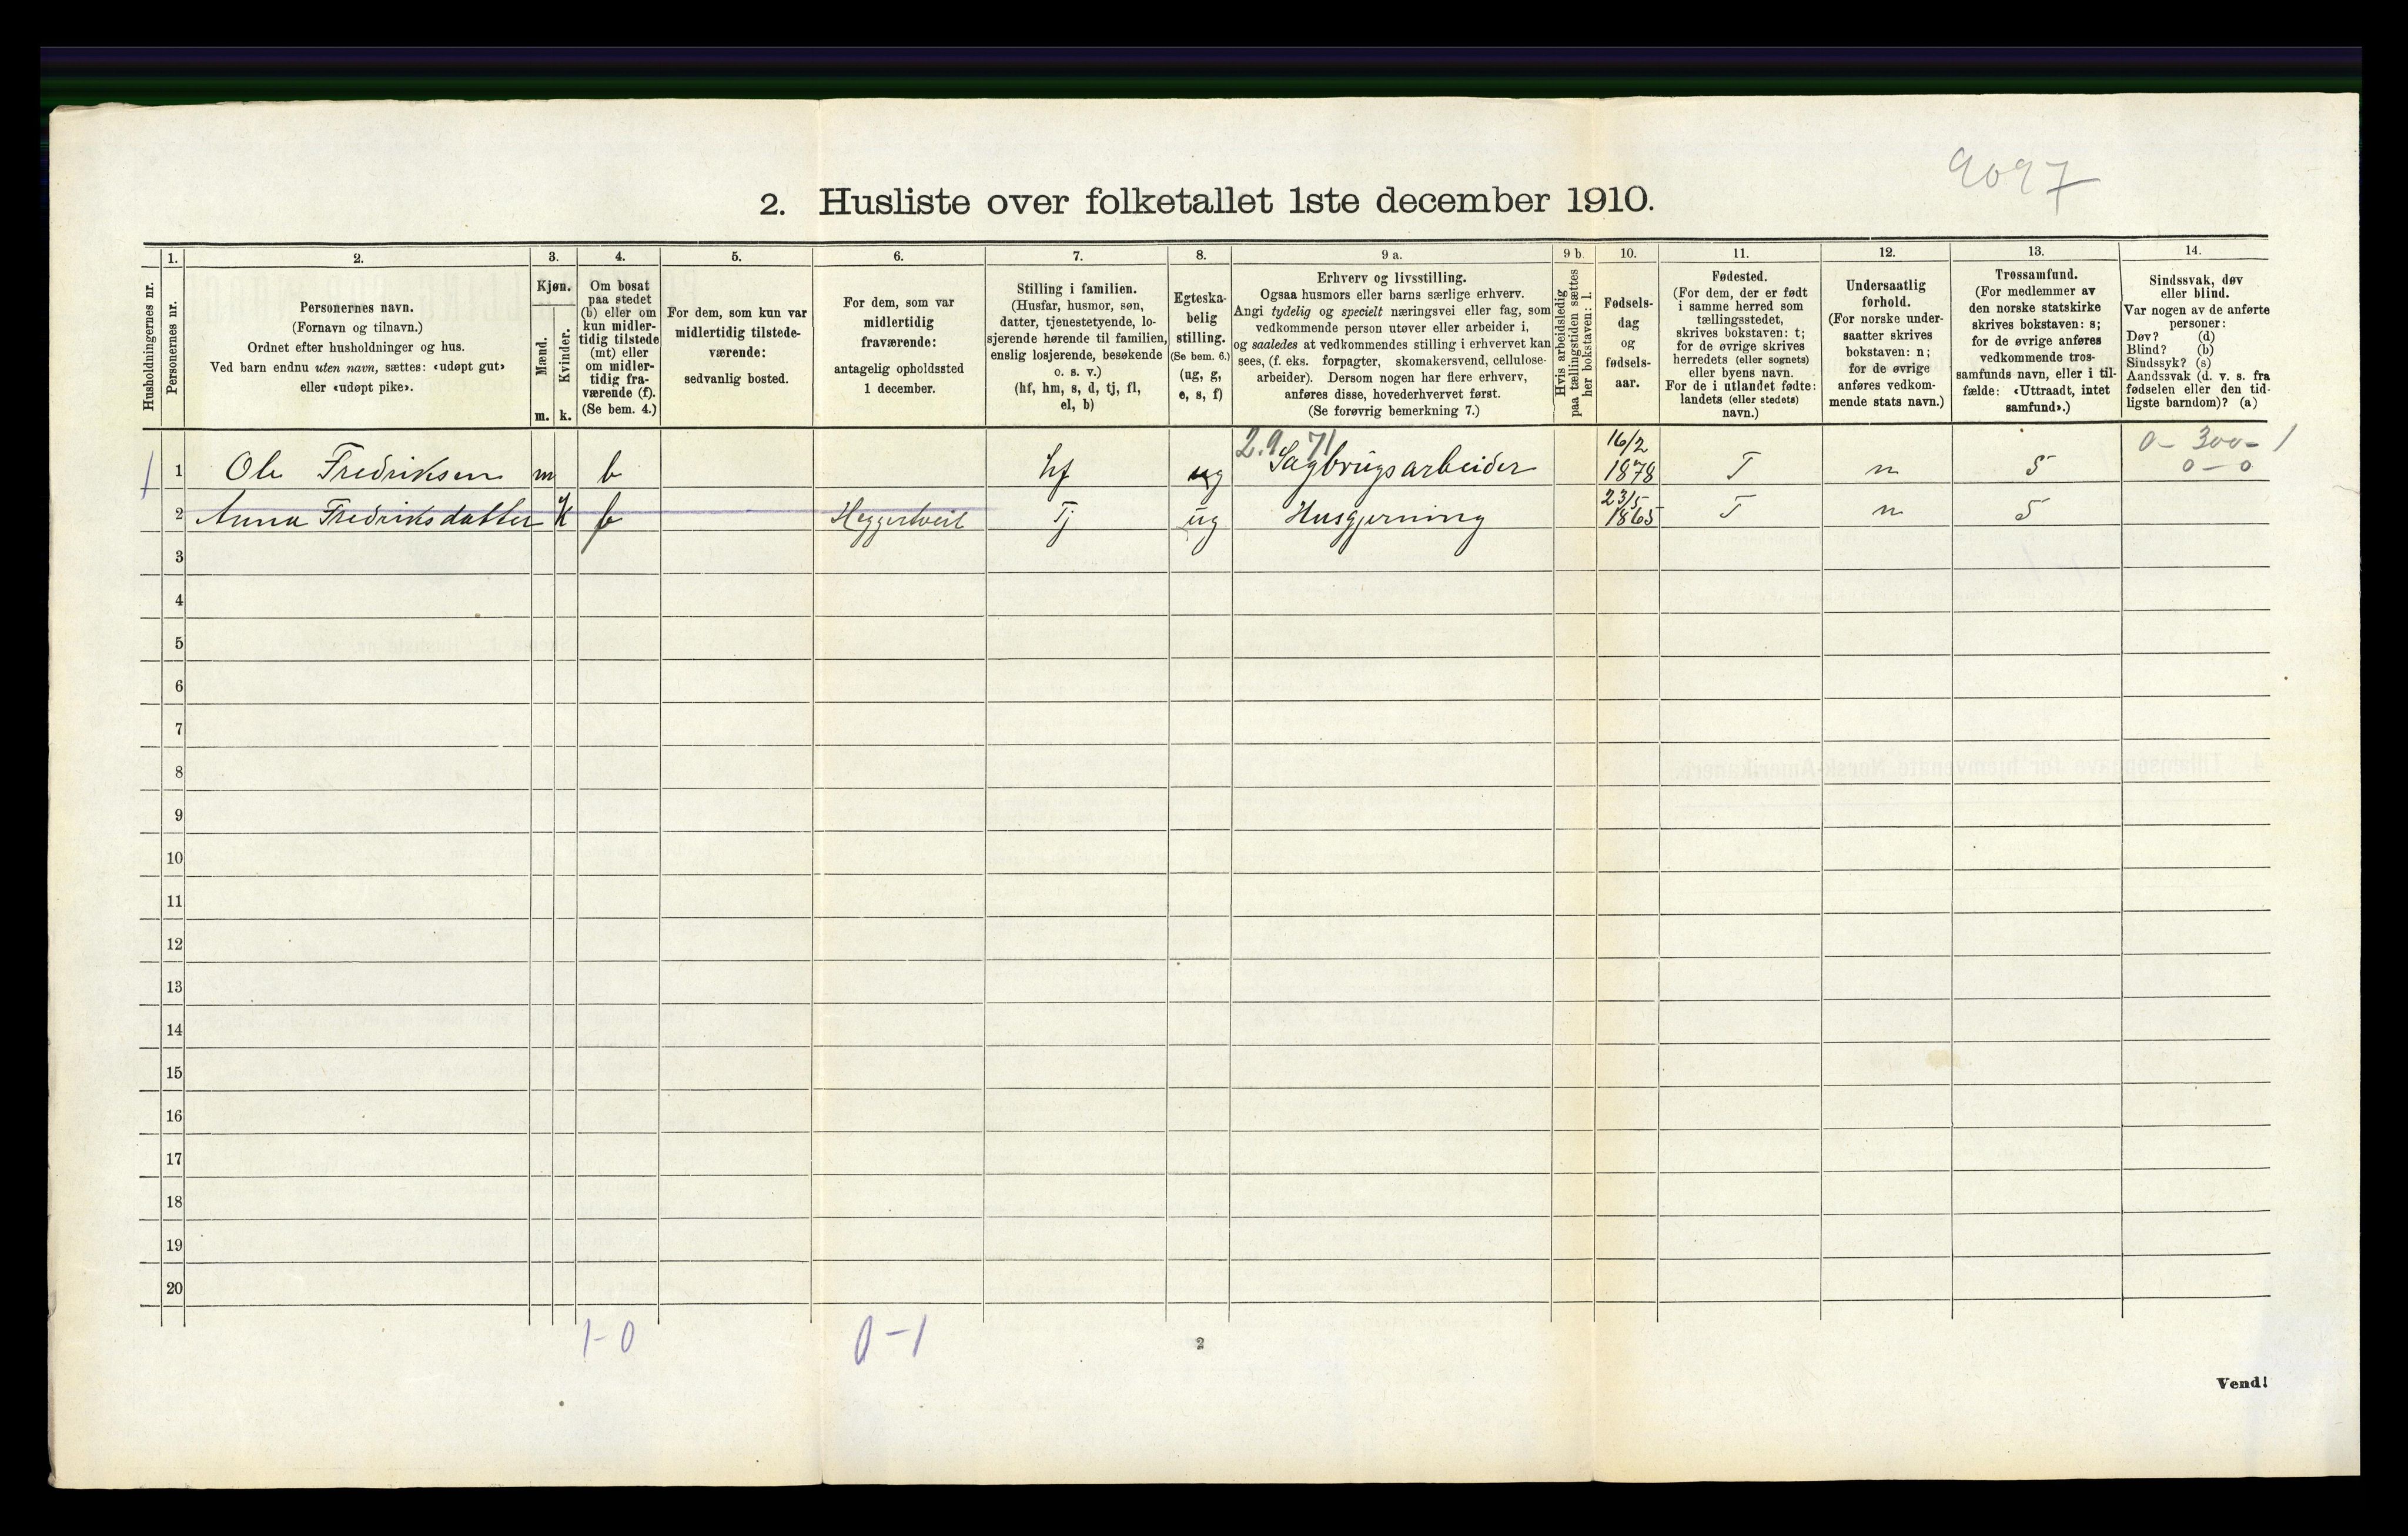 9097
2. Husliste over folketallet 1ste december 1910.
Husholdningernes nr.
1.
Personernes nr.
2.
Personernes navn.
(Fornavn og tilnavn.)
Ordnet efter husholdninger og hus.
Ved barn endnu uten navn, sættes: «udøpt gut»
eller «udøpt pike».
3.
Kjøn.
Mænd.
Kvinder.
m. k.
4.
Om bosat
paa stedet
(b) eller om
kun midler-
tidig tilstede
(mt) eller
om midler-
tidig fra-
værende (f).
(Se bem. 4.)
5.
For dem, som kun var
midlertidig tilstede-
værende:
sedvanlig bosted.
6.
For dem, som var
midlertidig
fraværende:
antagelig opholdssted
1 december.
7.
Stilling i familien.
(Husfar, husmor, søn,
datter, tjenestetyende, lo-
sjerende hørende til familien,
enslig losjerende, besøkende
o. s. v.)
(hf, hm, s, d, tj, fl,
el, b)
8.
Egteska-
belig
stilling.
(Se bem. 6.)
(ug, g,
e, s, f)
9 a.
Erhverv og livsstilling.
Ogsaa husmors eller barns særlige erhverv.
Angi tydelig og specielt næringsvei eller fag, som
vedkommende person utøver eller arbeider i,
og saaledes at vedkommendes stilling i erhvervet kan
sees, (f. eks. forpagter, skomakersvend, cellulose-
arbeider). Dersom nogen har flere erhverv,
anføres disse, hovederhvervet først.
(Se forøvrig bemerkning 7.)
9 b.
Hvis arbeidsledig
paa tællingstiden sættes
her bokstaven: l.
10.
Fødsels-
dag
og
fødsels-
aar.
11.
Fødested.
(For dem, der er født
i samme herred som
tællingsstedet,
skrives bokstaven: t;
for de øvrige skrives
herredets (eller sognets)
eller byens navn.
For de i utlandet fødte:
landets (eller stedets)
navn.)
12.
Undersaatlig
forhold.
(For norske under-
saatter skrives
bokstaven: n;
for de øvrige
anføres vedkom-
mende stats navn.)
13.
Trossamfund.
(For medlemmer av
den norske statskirke
skrives bokstaven: s;
for de øvrige anføres
vedkommende tros-
samfunds navn, eller i til-
fælde: «Uttraadt, intet
samfund».)
14.
Sindssvak, døv
eller blind.
Var nogen av de anførte
personer:
Døv? (d)
Blind? (b)
Sindssyk? (s)
Aandssvak (d. v. s. fra
fødselen eller den tid-
ligste barndom)? (a)
2.9 71 16/2 0-300-1
1 1 Ole Fredriksen m b hf ug Sagbrugsarbeider 1878 T n S 0-0
23/5
2 Anna Fredriksdatter K f Heggertveit Tj ug Husgjerning 1865 T n S
3
4
5
6
7
8
9
10
11
12
13
14
15
16
17
18
19
20
1-0 0-1
2
Vend!